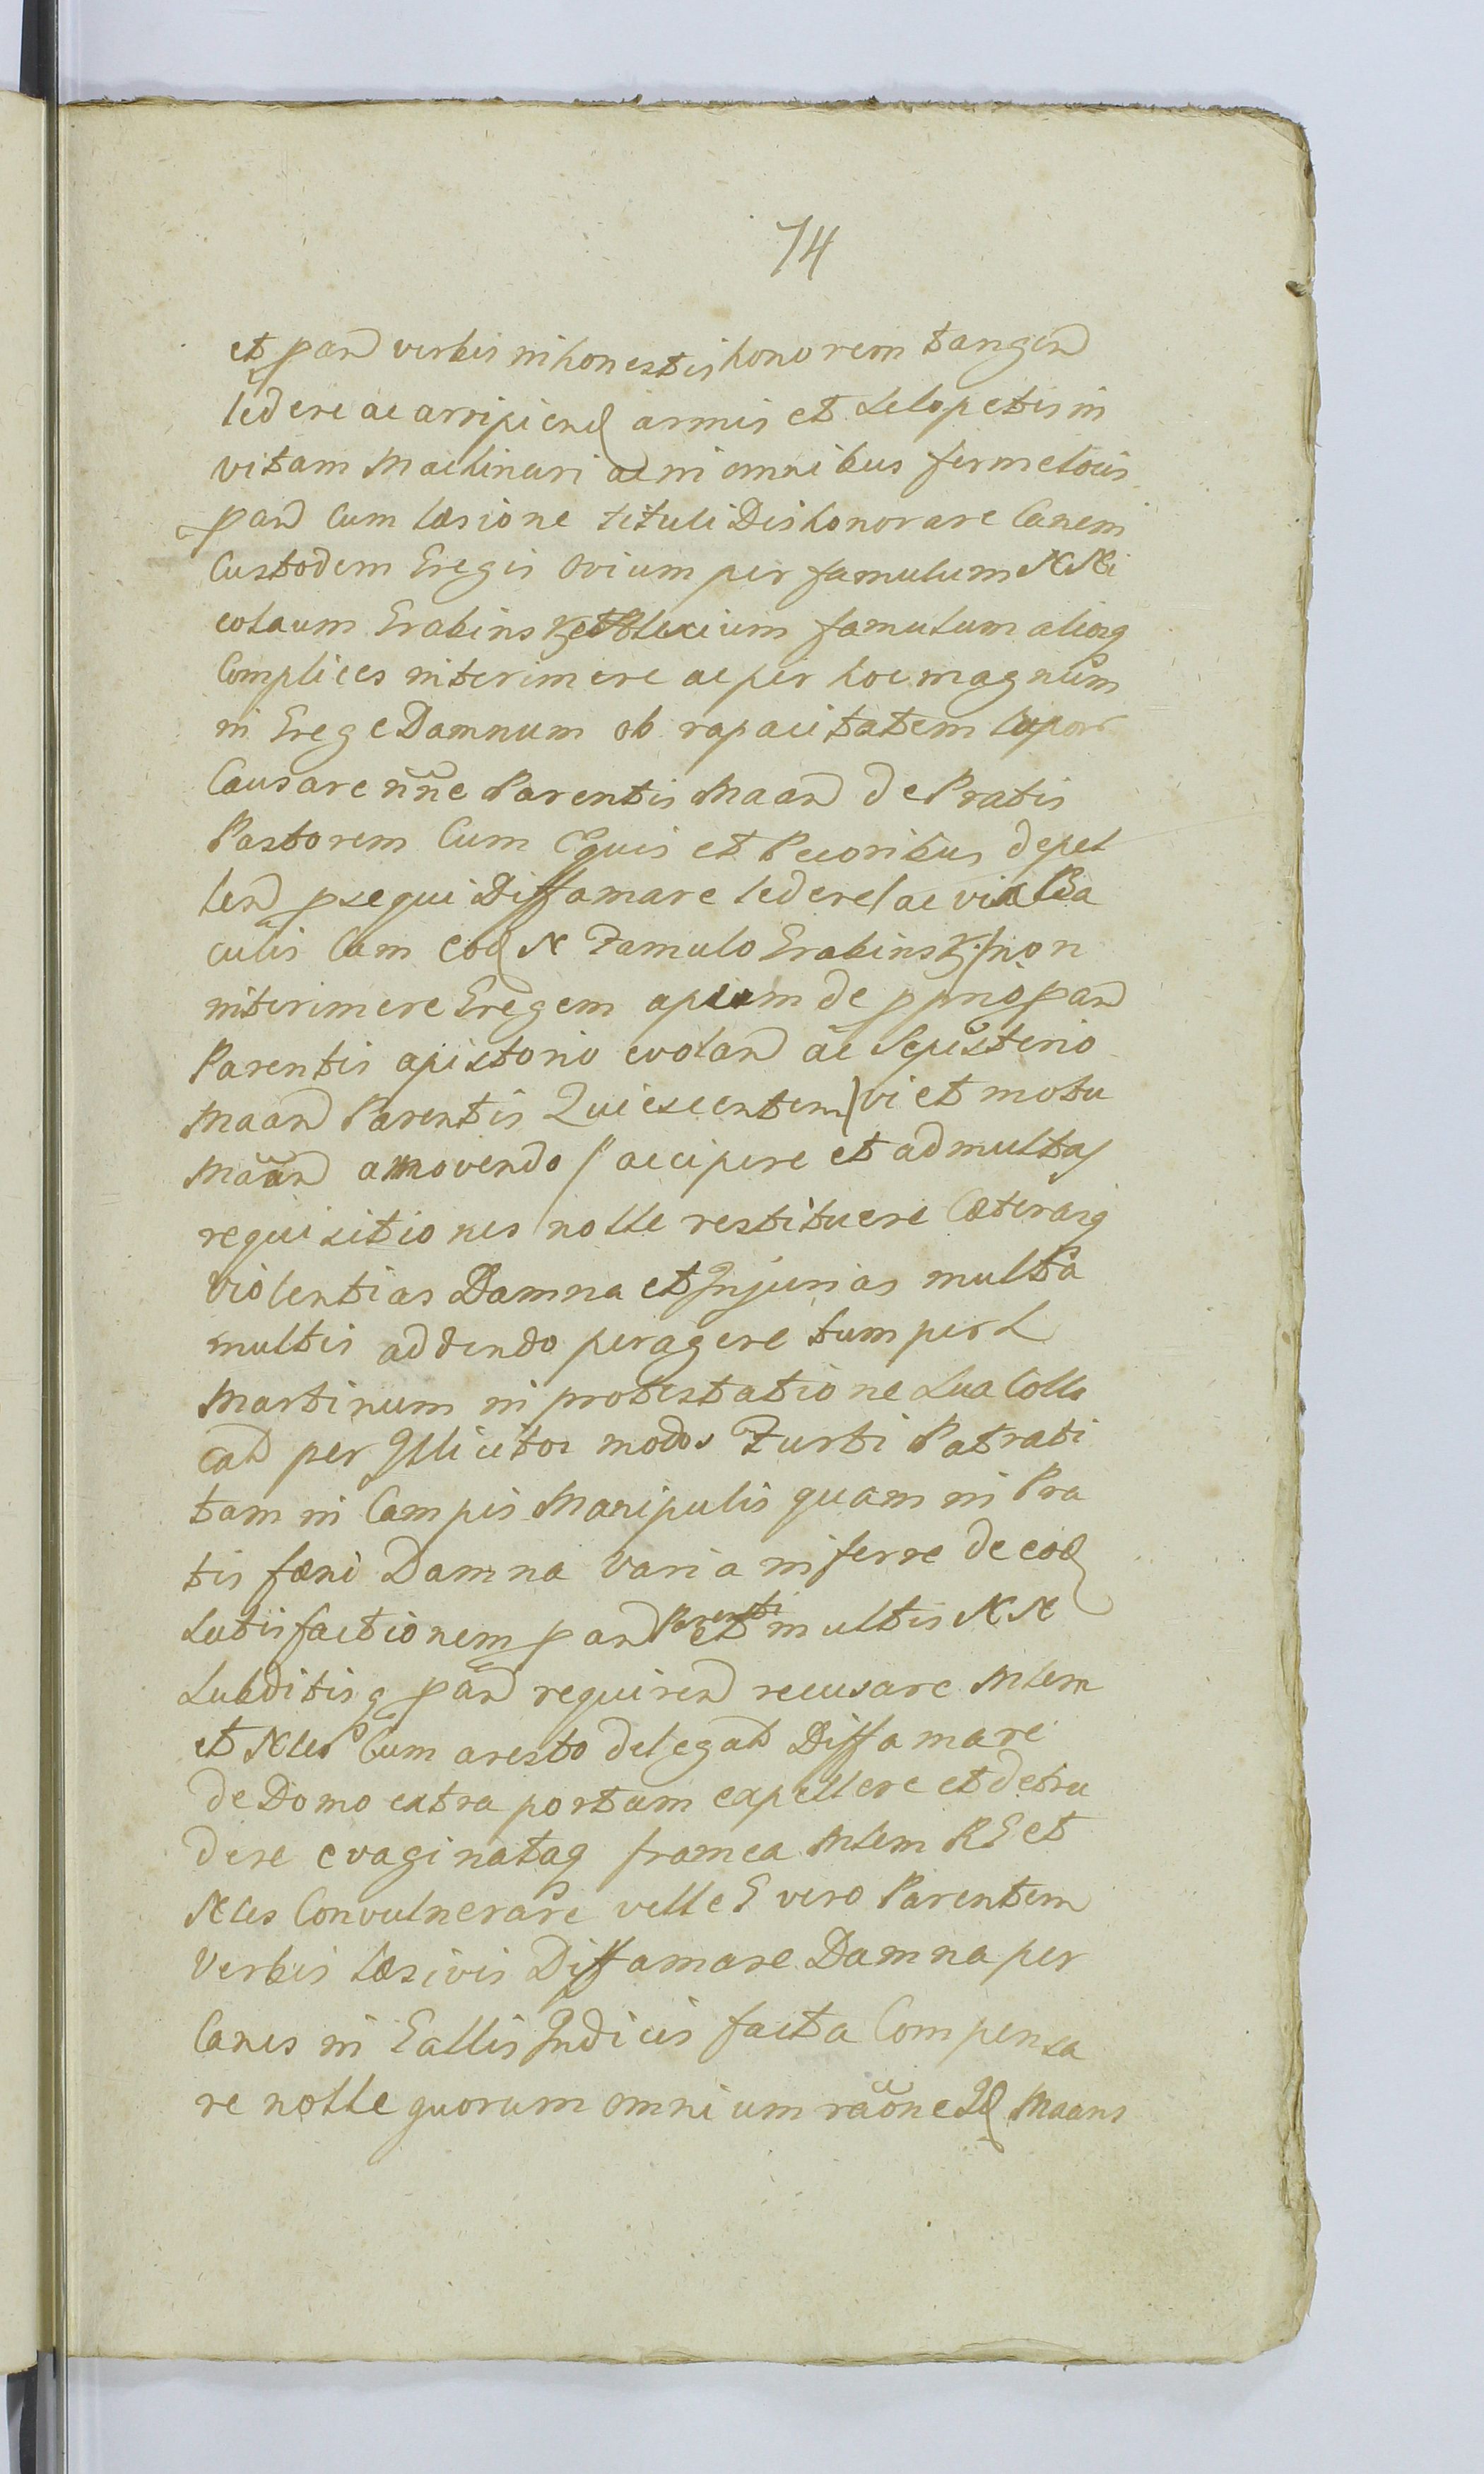 74
et pan̄d verbis inhonestis honorem tangen̄d
ledere ac arripiend armis et Selopetis in
vitam Machinari ac in omnibus ferme locis
pan̄d Cum læsione tituli Dishonorare Canem
Custodem Gregis Ovium per famulum N Ni
colaum Grabinsk et Alexium famulum aliosq
Complices interimere ac per hoc magnum
in Grege Damnum ob rapacitatem Lupor
Causare nn̄e Parentis Maan̄d de Pratis
Pastorem Cum Equis et Pecoribus depel
len̄d psequi Diffamare ledere / ac vix Ba
culis Cum eod N Famulo Grabinsk / non
interimere Gregem apium de pprio pan̄d
Parentis apistorio evolan̄d ac Sepisterio
Maan̄d Parentis Quiescentem / vi et motu
Maan̄d amovendo / accipere et ad multas
requisitiones nolle restituere Cæterasq
Violentias Damna et Injurias multa
multis addendo peragere tum per L
Martinum in protestatione Sua Collo
cat̄ per Illicitos modos Furti Patrati
tam in Campis Manipulis quam in Pra
tis fæni Damna Varia inferre de eod
Satisfactionem pan̄d Parenti et multis N N
Subditisq pan̄d requiren̄d recusare Mlem
et Nles Cum aresto delegat̄ Diffamare
de Domo extra portam expellere et detru
dere evaginataq framea Mlem RG et
Nles Convulnerare velle G vero Parentem
Verbis læsivis Diffamare Damna per
Canes in Gallis Indicis facta Compensa
re nolle quorum omnium rāone Id Maans